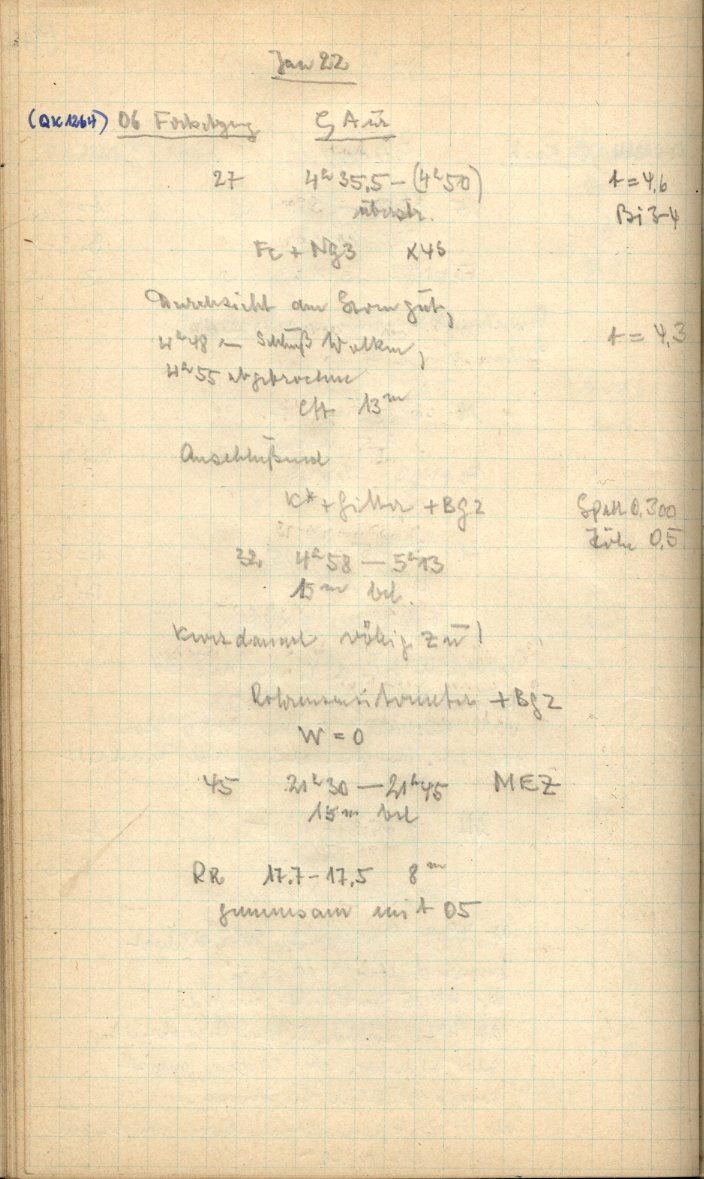 Jan 22
(QK1264) 06 Fortsetzung ζ Aur
27 4ʰ35,5 – (4ʰ50) t = 4,6
überstr. Bi 3-4
Fe + Ng3 X46
Durchsicht am Stern gut,
4ʰ48 – Schluß Wolken, t = 4,3
4ʰ55 abgebrochen
eff 13ᵐ
Anschließend
K* + Gitter + Bg2 Spalt 0,300
Höhe 0,5
22 4ʰ58 – 5ʰ13
15ᵐ bel.
Kurz danach völlig zu!
Röhrensensitometer + Bg2
W = 0
45 21ʰ30 – 21ʰ45 MEZ
15ᵐ bel
RR 17,7 – 17,5 8ᵐ
gemeinsam mit 05